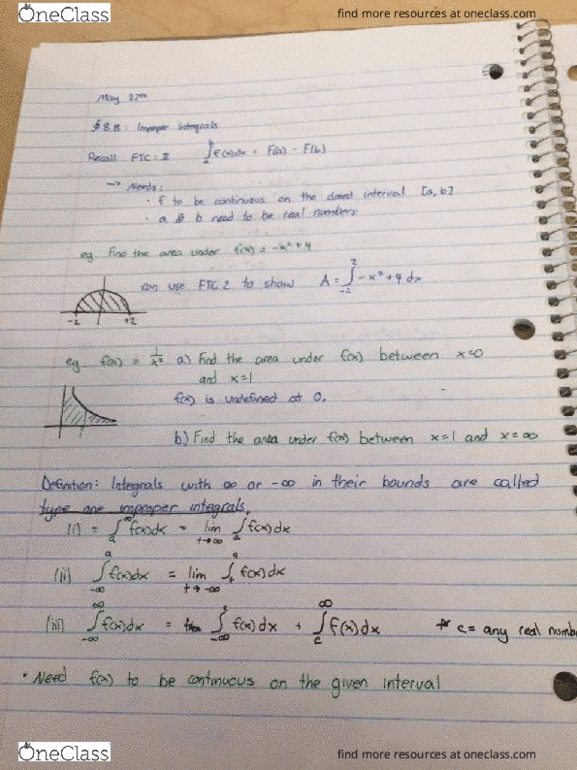 OneClass
find more resources at oneclass.com
May 27th
§ 8.8: Improper Integrals
Recall FTC: II ∫_a^b f(x)dx = F(a) - F(b)
→ Needs:
· f to be continuous on the closed interval [a, b]
· a & b need to be real numbers
eg. Find the area under f(x) = -x² + 4
can use FTC 2 to show A = ∫_{-2}^{2} -x² + 4 dx
-2 +2
eg. f(x) = 1/x² a) Find the area under f(x) between x=0
and x=1
f(x) is undefined at 0.
b) Find the area under f(x) between x=1 and x=∞
Definition: Integrals with ∞ or -∞ in their bounds are called
type one improper integrals.
(i) = ∫_a^∞ f(x)dx = lim_{t→∞} ∫ f(x)dx
(ii) ∫_{-∞}^a f(x)dx = lim_{t→-∞} ∫_t^a f(x)dx
(iii) ∫_{-∞}^∞ f(x)dx = ∫_{-∞}^c f(x)dx + ∫_c^∞ f(x)dx * c = any real numbe
· Need f(x) to be continuous on the given interval
OneClass
find more resources at oneclass.com